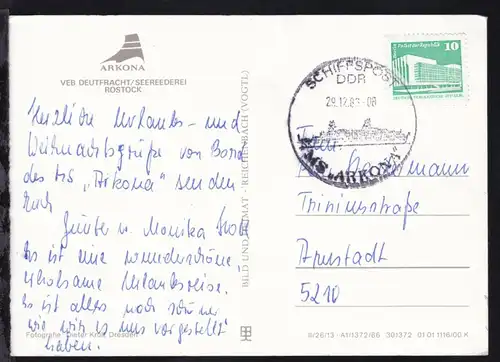 ARKONA
VEB DEUTFRACHT/SEEREEDEREI
ROSTOCK
Herzlichen Urlaubs- und
Weihnachtsgrüße von Bord
des MS „Arkona" senden
Euch
Günter u. Monika
Es ist eine wunderschöne,
erholsame Urlaubsreise.
Es ist alles noch schöner
wie wir es uns vorgestellt
haben.
Fotografie: Dieter Krull, Dresden
BILD UND HEIMAT REICHENBACH (VOGTL)
SCHIFFSPOST
DDR
29.12.89-08
MS „ARKONA"
Palast der Republik 10
Fam.
Trinitiusstraße
Arnstadt
5210
II/26/13 A1/1372/86 301372 01 01 1116/00 K